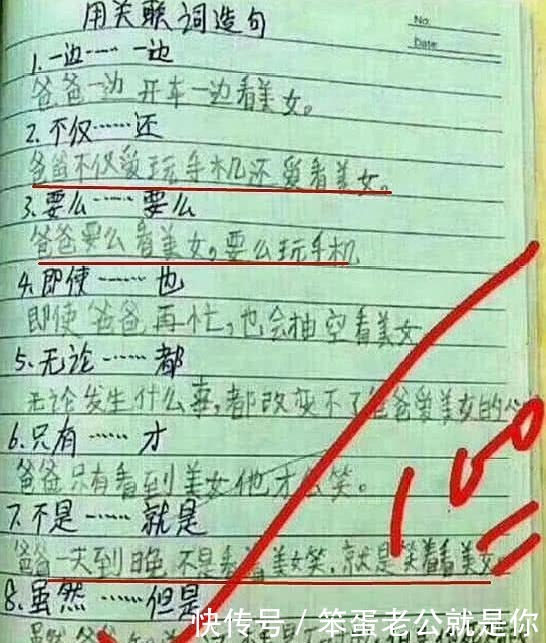 用关联词造句
No.
Date
1.一边……一边
爸爸一边开车一边看美女。
2.不仅……还
爸爸不仅爱玩手机还爱看美女。
3.要么……要么
爸爸要么看美女。要么玩手机
4.即使……也
即使爸爸再忙,也会抽空看美女
5.无论……都
无论发生什么事,都改变不了爸爸爱美女的心
6.只有……才
爸爸只有看到美女他才会笑。
7.不是……就是
爸爸一天到晚不是看着美女笑,就是笑着看美女
100
8.虽然……但是
虽然爸爸
快传号/笨蛋老公就是你